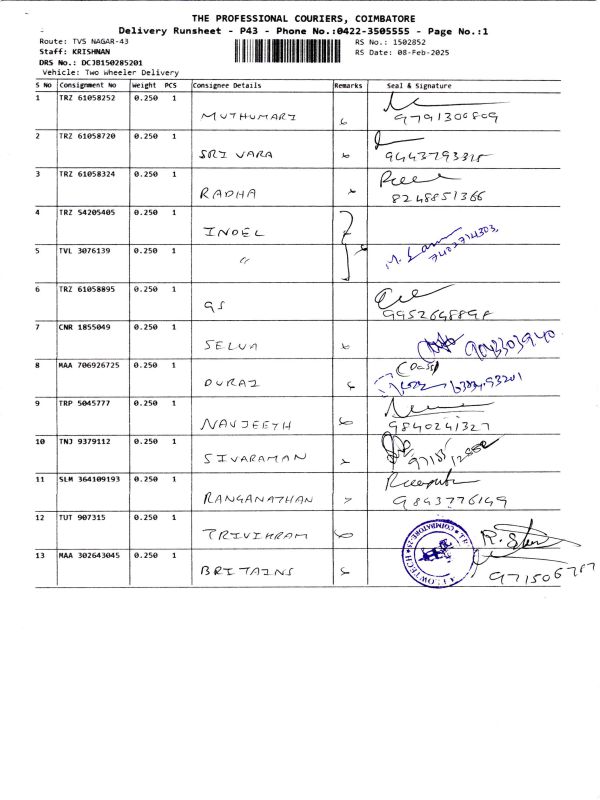 THE PROFESSIONAL COURIERS, COIMBATORE
Delivery Runsheet - P43 - Phone No.:0422-3505555 - Page No.:1
Route: TVS NAGAR-43 RS No.: 1502852
Staff: KRISHNAN RS Date: 08-Feb-2025
DRS No.: DCJB150285201
Vehicle: Two Wheeler Delivery
S No Consignment No Weight PCS Consignee Details Remarks Seal & Signature
1 TRZ 61058252 0.250 1
MUTHUMARI 9791300809
2 TRZ 61058720 0.250 1
SRI VARA
3 TRZ 61058324 0.250 1
RADHA 8248851366
4 TRZ 54205405 0.250 1
INOEL
5 TVL 3076139 0.250 1
"
6 TRZ 61058895 0.250 1
GS
7 CNR 1855049 0.250 1
SELVA
8 MAA 706926725 0.250 1
DURAI
9 TRP 5045777 0.250 1
NAVJEETH 9840241327
10 TNJ 9379112 0.250 1
SIVARAMAN
11 SLM 364109193 0.250 1
RANGANATHAN 9843776149
12 TUT 907315 0.250 1
TRIVIKRAM
13 MAA 302643045 0.250 1
BRITAINS